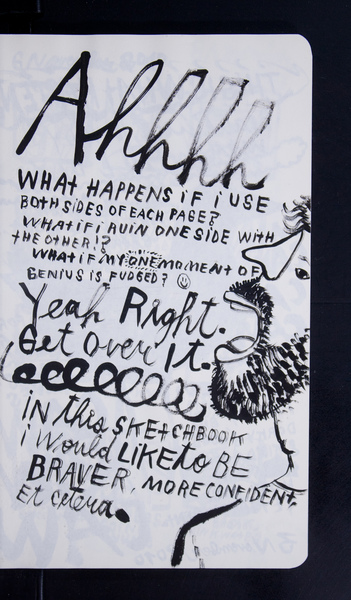 Ahhhh
WHAT HAPPENS iF i USE
BOTH SiDES OF EACH PAGE?
WHAT iF i RUiN ONE SiDE WiTH
THE OTHER!?
WHAT iF MY ONE MOMENT OF
GENiUS iS FUDGED?
Yeah Right.
Get over It.
iN this SKETCHBOOK
i would LIKE to BE
BRAVER, MORE CONFiDENT,
Et cetera.